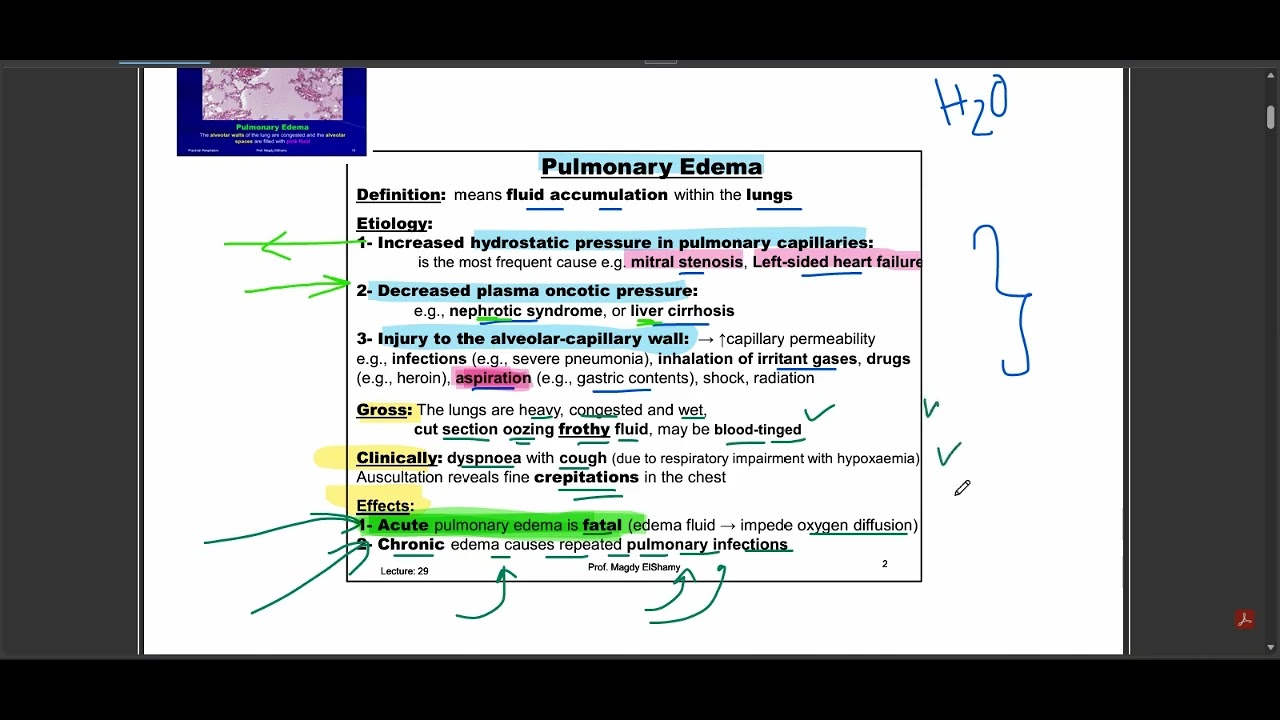 H2O
Pulmonary Edema
The alveolar walls of the lung are congested and the alveolar
spaces are filled with pink fluid.
Prof. Magdy ElShamy
Pulmonary Edema
Definition: means fluid accumulation within the lungs
Etiology:
1- Increased hydrostatic pressure in pulmonary capillaries:
is the most frequent cause e.g. mitral stenosis, Left-sided heart failure
2- Decreased plasma oncotic pressure:
e.g., nephrotic syndrome, or liver cirrhosis
3- Injury to the alveolar-capillary wall: → ↑capillary permeability
e.g., infections (e.g., severe pneumonia), inhalation of irritant gases, drugs
(e.g., heroin), aspiration (e.g., gastric contents), shock, radiation
Gross: The lungs are heavy, congested and wet,
cut section oozing frothy fluid, may be blood-tinged
Clinically: dyspnoea with cough (due to respiratory impairment with hypoxaemia)
Auscultation reveals fine crepitations in the chest
Effects:
1- Acute pulmonary edema is fatal (edema fluid → impede oxygen diffusion)
2- Chronic edema causes repeated pulmonary infections
Lecture: 29 Prof. Magdy ElShamy 2